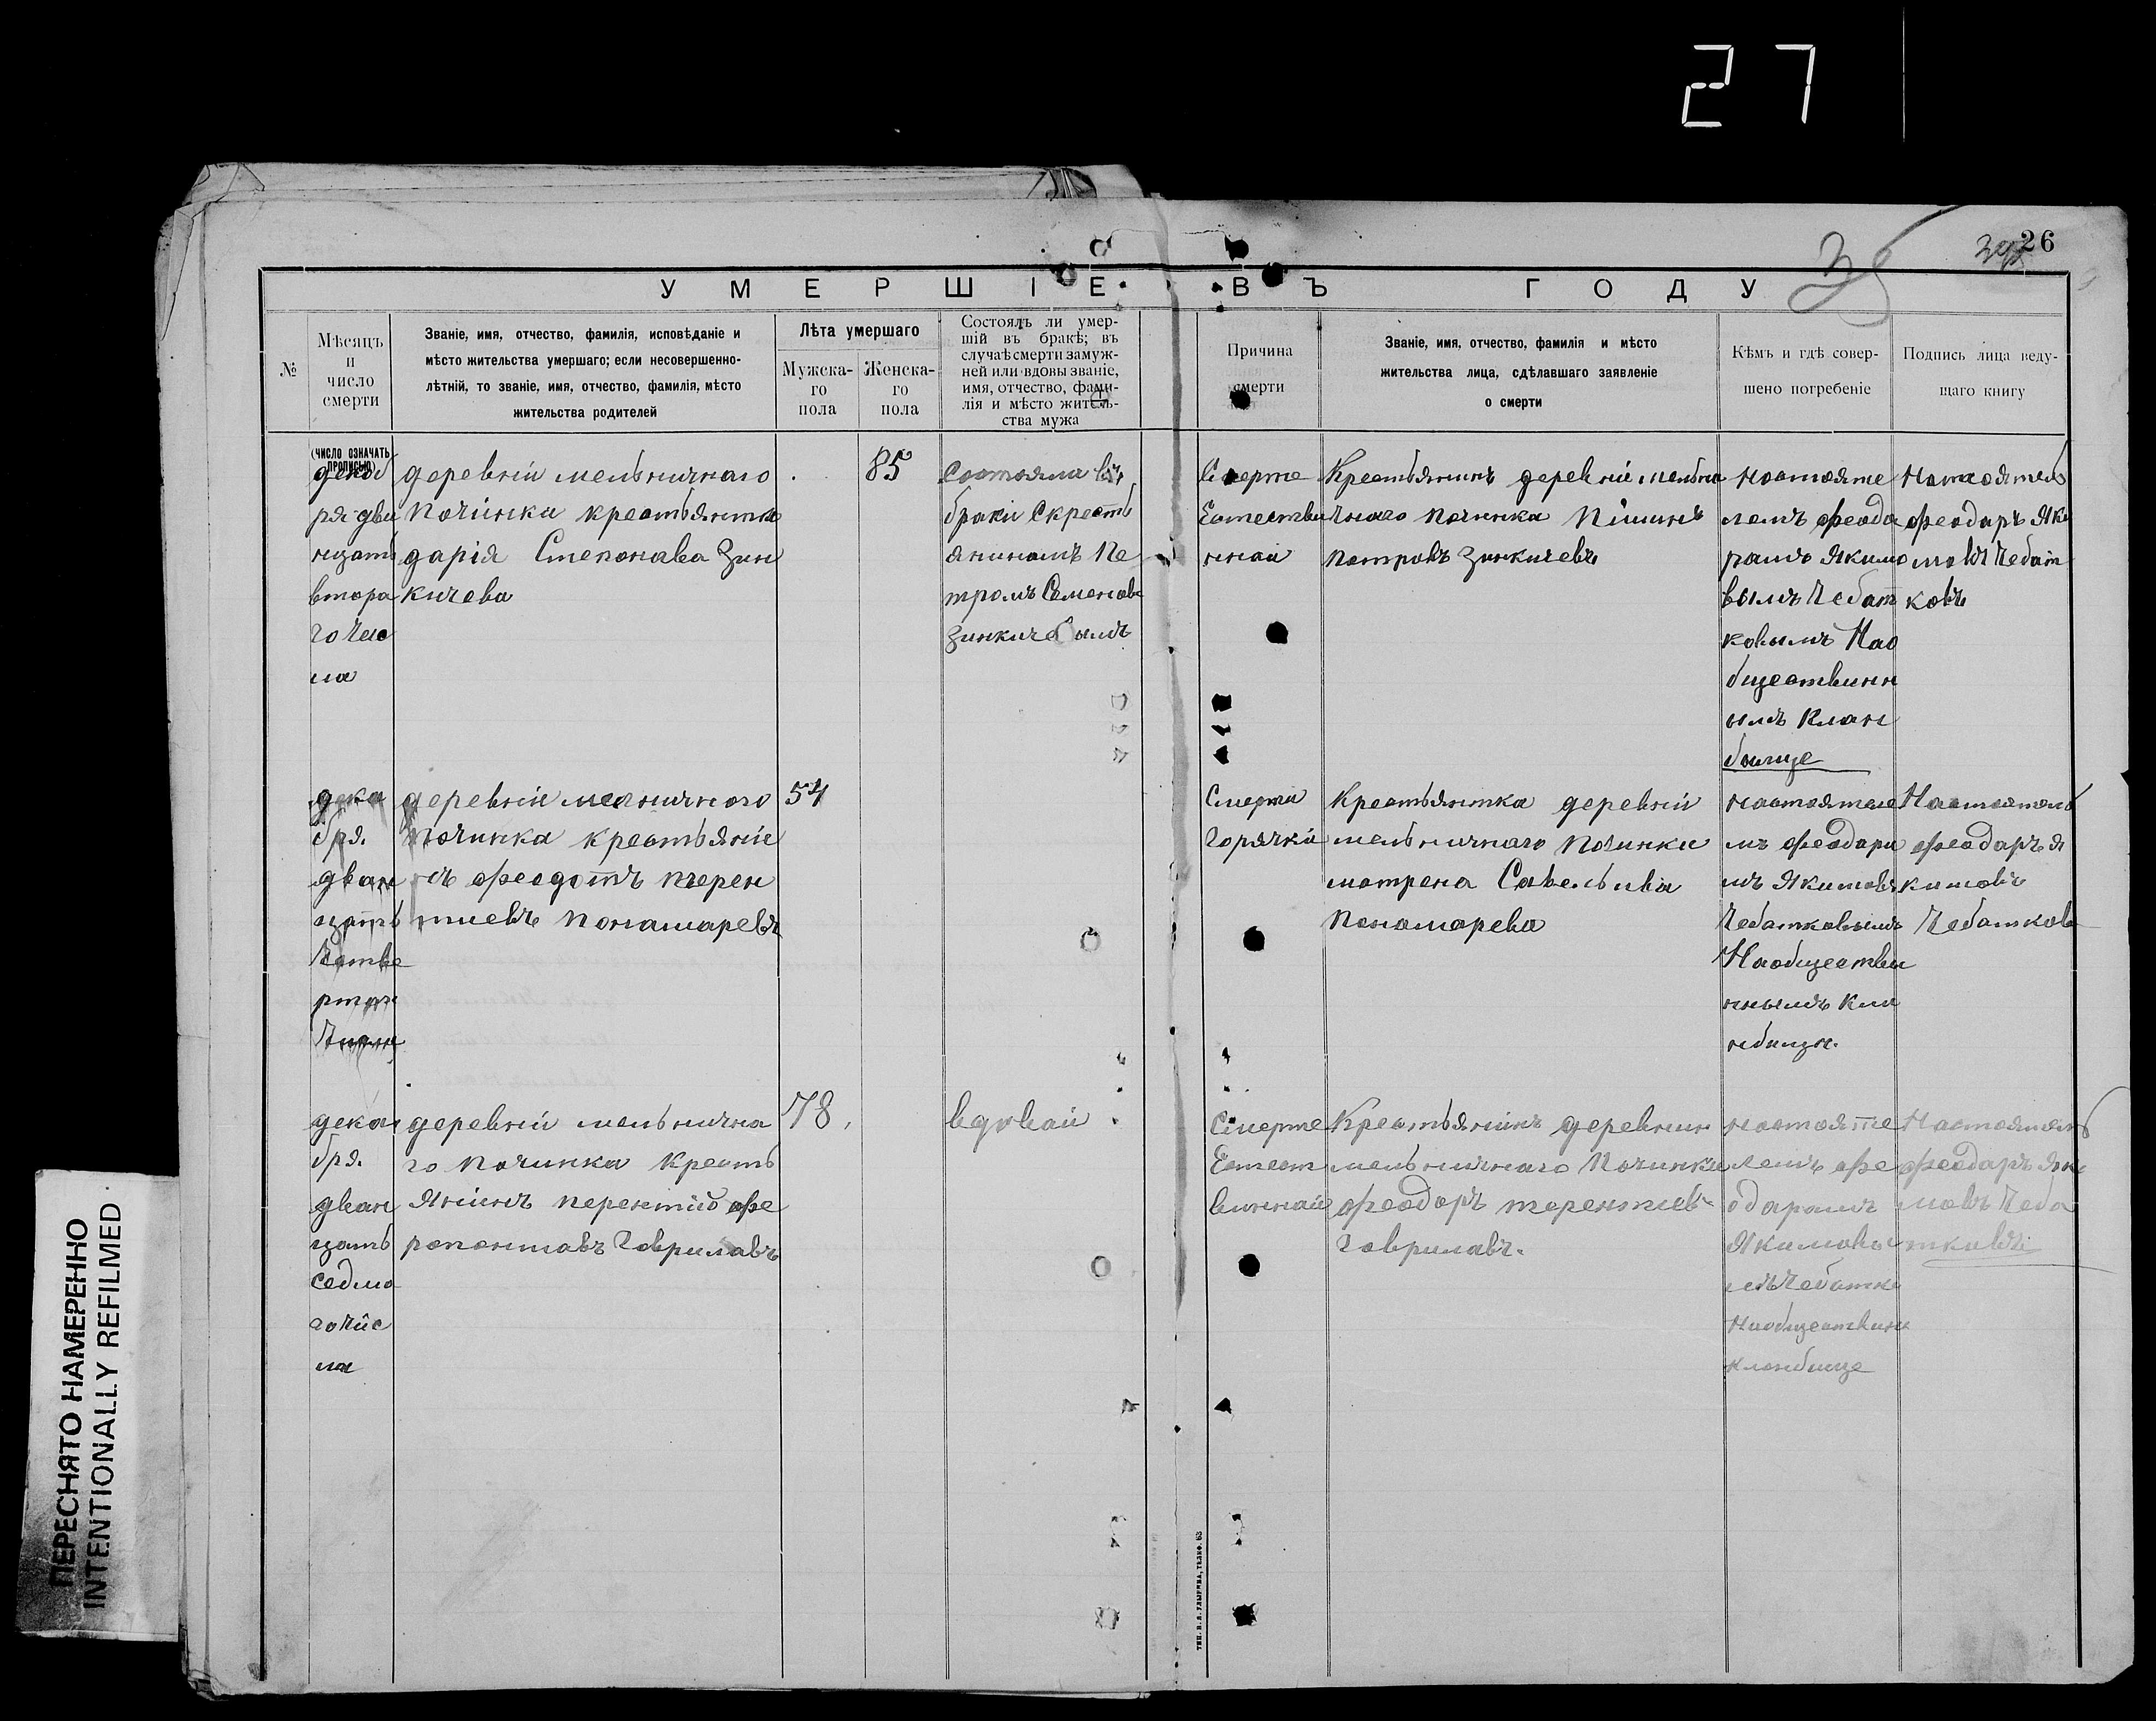 27
26
УМЕРШІЕ ВЪ ГОДУ
№
Мѣсяцъ
и
число
смерти
Званіе, имя, отчество, фамилія, исповѣданіе и
мѣсто жительства умершаго; если несовершенно-
лѣтній, то званіе, имя, отчество, фамилія, мѣсто
жительства родителей
Лѣта умершаго
Мужска-
го
пола
Женска-
го
пола
Состоялъ ли умер-
шій въ бракѣ; въ
случаѣ смерти замуж-
ней или вдовы званіе,
имя, отчество, фами-
лія и мѣсто житель-
ства мужа
Причина
смерти
Званіе, имя, отчество, фамилія и мѣсто
жительства лица, сдѣлавшаго заявленіе
о смерти
Кѣмъ и гдѣ совер-
шено погребеніе
Подпись лица веду-
щаго книгу
(число означать
прописью)
декаб
ря два
нцать
втора
го чис
ла
деревніи мельничнаго
Починка крестьянка
дарія Степонава Зин
кичева
85
Состояла въ
браки Скресть
яниномъ Пе
тромъ Семенов
Зинкичевымъ
Смерте
Естестви
ннаи
Крестьянинъ деревніи мельни
чнаго Починка Пішинъ
Петровъ Зинкичевъ
Настояте
лемъ феода
рамъ Якимо
вымъ Чебот
ковымъ Нао
бществинн
ымъ Клан
бище
Настоятель
феодаръ Яки
мовъ Чебат
ковъ
дека
бря.
дван
цать
Четве
ртог
Числа
деревніи мелничного
Починка крестьяніи
нъ феодотъ терен
тиевъ Понамаревъ
54
Смерти
Горячки
Крестьянтка деревніи
мельничнаго Починки
матрена Савельива
Понамарева
настоятеле
мъ феодара
мъ Якимовъ
Чебатковымъ
Наобществи
ннымъ Кла
нбищи.
Настоятель
феодаръ Я
кимовъ
Чебатковъ
дека
бря.
дван
цать
седмо
го чис
ла
деревніи мельнична
го Починка Кресть
Янинъ терентій фе
рапонтавъ Гаврилавъ
78.
вдоваи
Смерте
Естест
виннаи
Крестьянинъ деревнии
мельничнаго Починки
феодоръ терентиевъ
Гаврилавъ.
настояте
лемъ фе
одарамъ
Якимовы
мъ Чебатко
Наобществин
кланбище
Настоятель
феодаръ Яки
мовъ Чеба
тковъ
ПЕРЕСНЯТО НАМЕРЕННО
INTENTIONALLY REFILMED